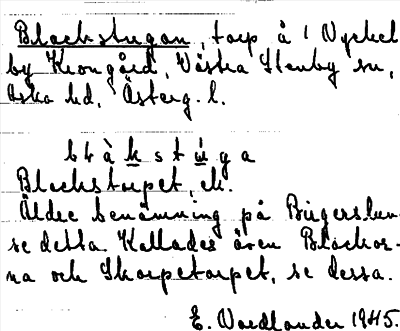 Blockstugan, torp å 1 Nyckel
by Krongård, Västra Stenby sn,
Aska hd, Österg. l.
blåkstuga
Blockstorpet, ek.
Äldre benämning på Birgerslun-
se detta. Kallades även Blockor-
na och Skorpetorpet, se dessa.
E. Nordlander 1945.